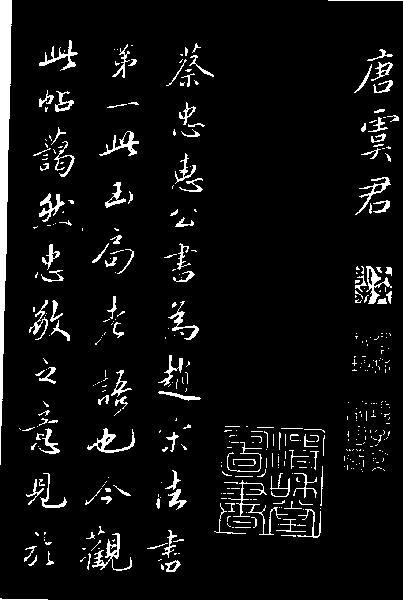 唐虞君
蔡忠惠公書為趙宋法書
第一此玉局老語也今觀
此帖藹然忠敬之意見於